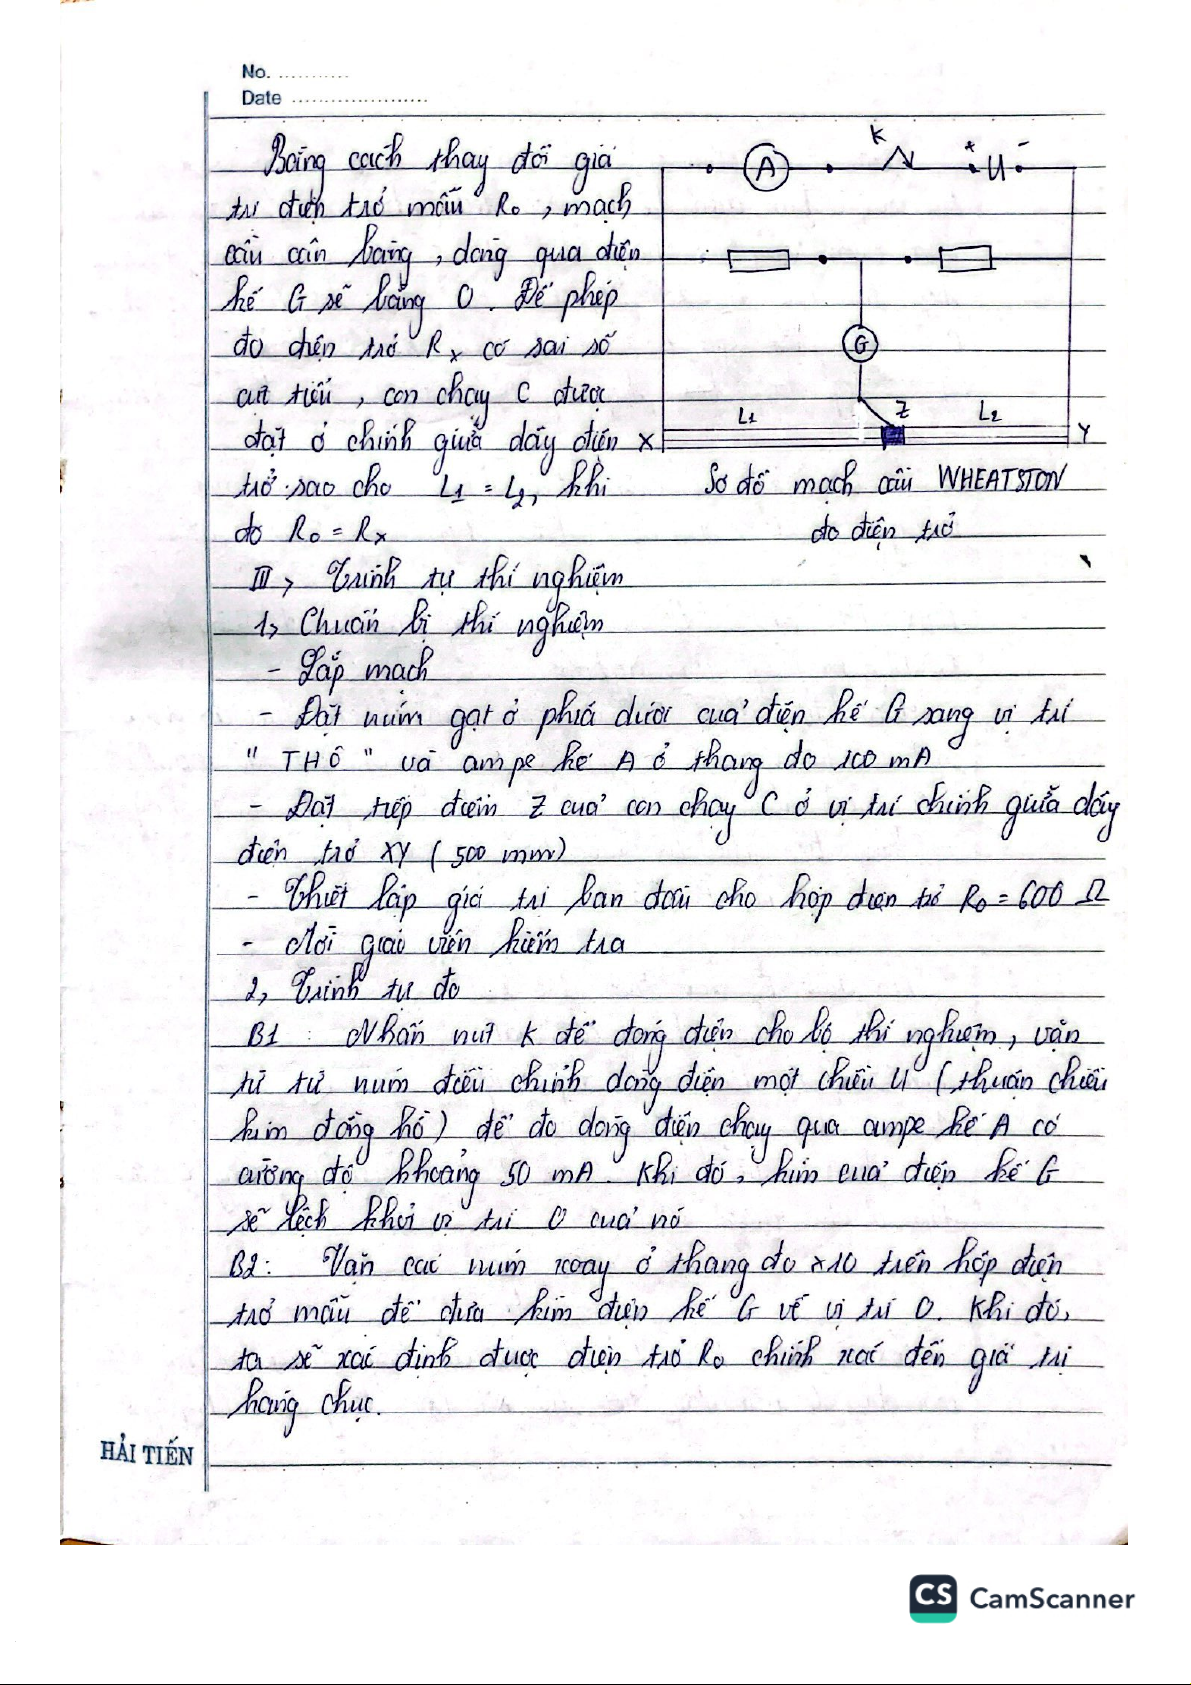 No. ...........
Date ......................
Bằng cách thay đổi giá
trị điện trở mẫu R₀, mạch
cầu cân bằng, dòng qua điện
kế G sẽ bằng 0. Để phép
đo điện trở Rₓ có sai số
cực tiểu, con chạy C được
đặt ở chính giữa dây điện
trở sao cho L₁ = L₂, khi
đó R₀ = Rₓ
K
A
+ U -
G
L₁
Z
L₂
X
Y
Sơ đồ mạch cầu WHEATSTON
đo điện trở
III, Trình tự thí nghiệm
1, Chuẩn bị thí nghiệm
- Lắp mạch
- Đặt núm gạt ở phía dưới của điện kế G sang vị trí
" THÔ " và ampe kế A ở thang đo 100 mA
- Đặt tiếp điểm Z của con chạy C ở vị trí chính giữa dây
điện trở XY ( 500 mm)
- Thiết lập giá trị ban đầu cho hộp điện trở R₀ = 600 Ω
- Mời giáo viên kiểm tra
2, Trình tự đo
B1 : Nhấn nút K để đóng điện cho bộ thí nghiệm, vặn
từ từ núm điều chỉnh dòng điện một chiều U (thuận chiều
kim đồng hồ) để đo dòng điện chạy qua ampe kế A có
cường độ khoảng 50 mA. Khi đó, kim của điện kế G
sẽ lệch khỏi vị trí 0 của nó
B2: Vặn các núm xoay ở thang đo x10 trên hộp điện
trở mẫu để đưa kim điện kế G về vị trí 0. Khi đó,
ta sẽ xác định được điện trở R₀ chính xác đến giá trị
hàng chục.
HẢI TIẾN
CS CamScanner